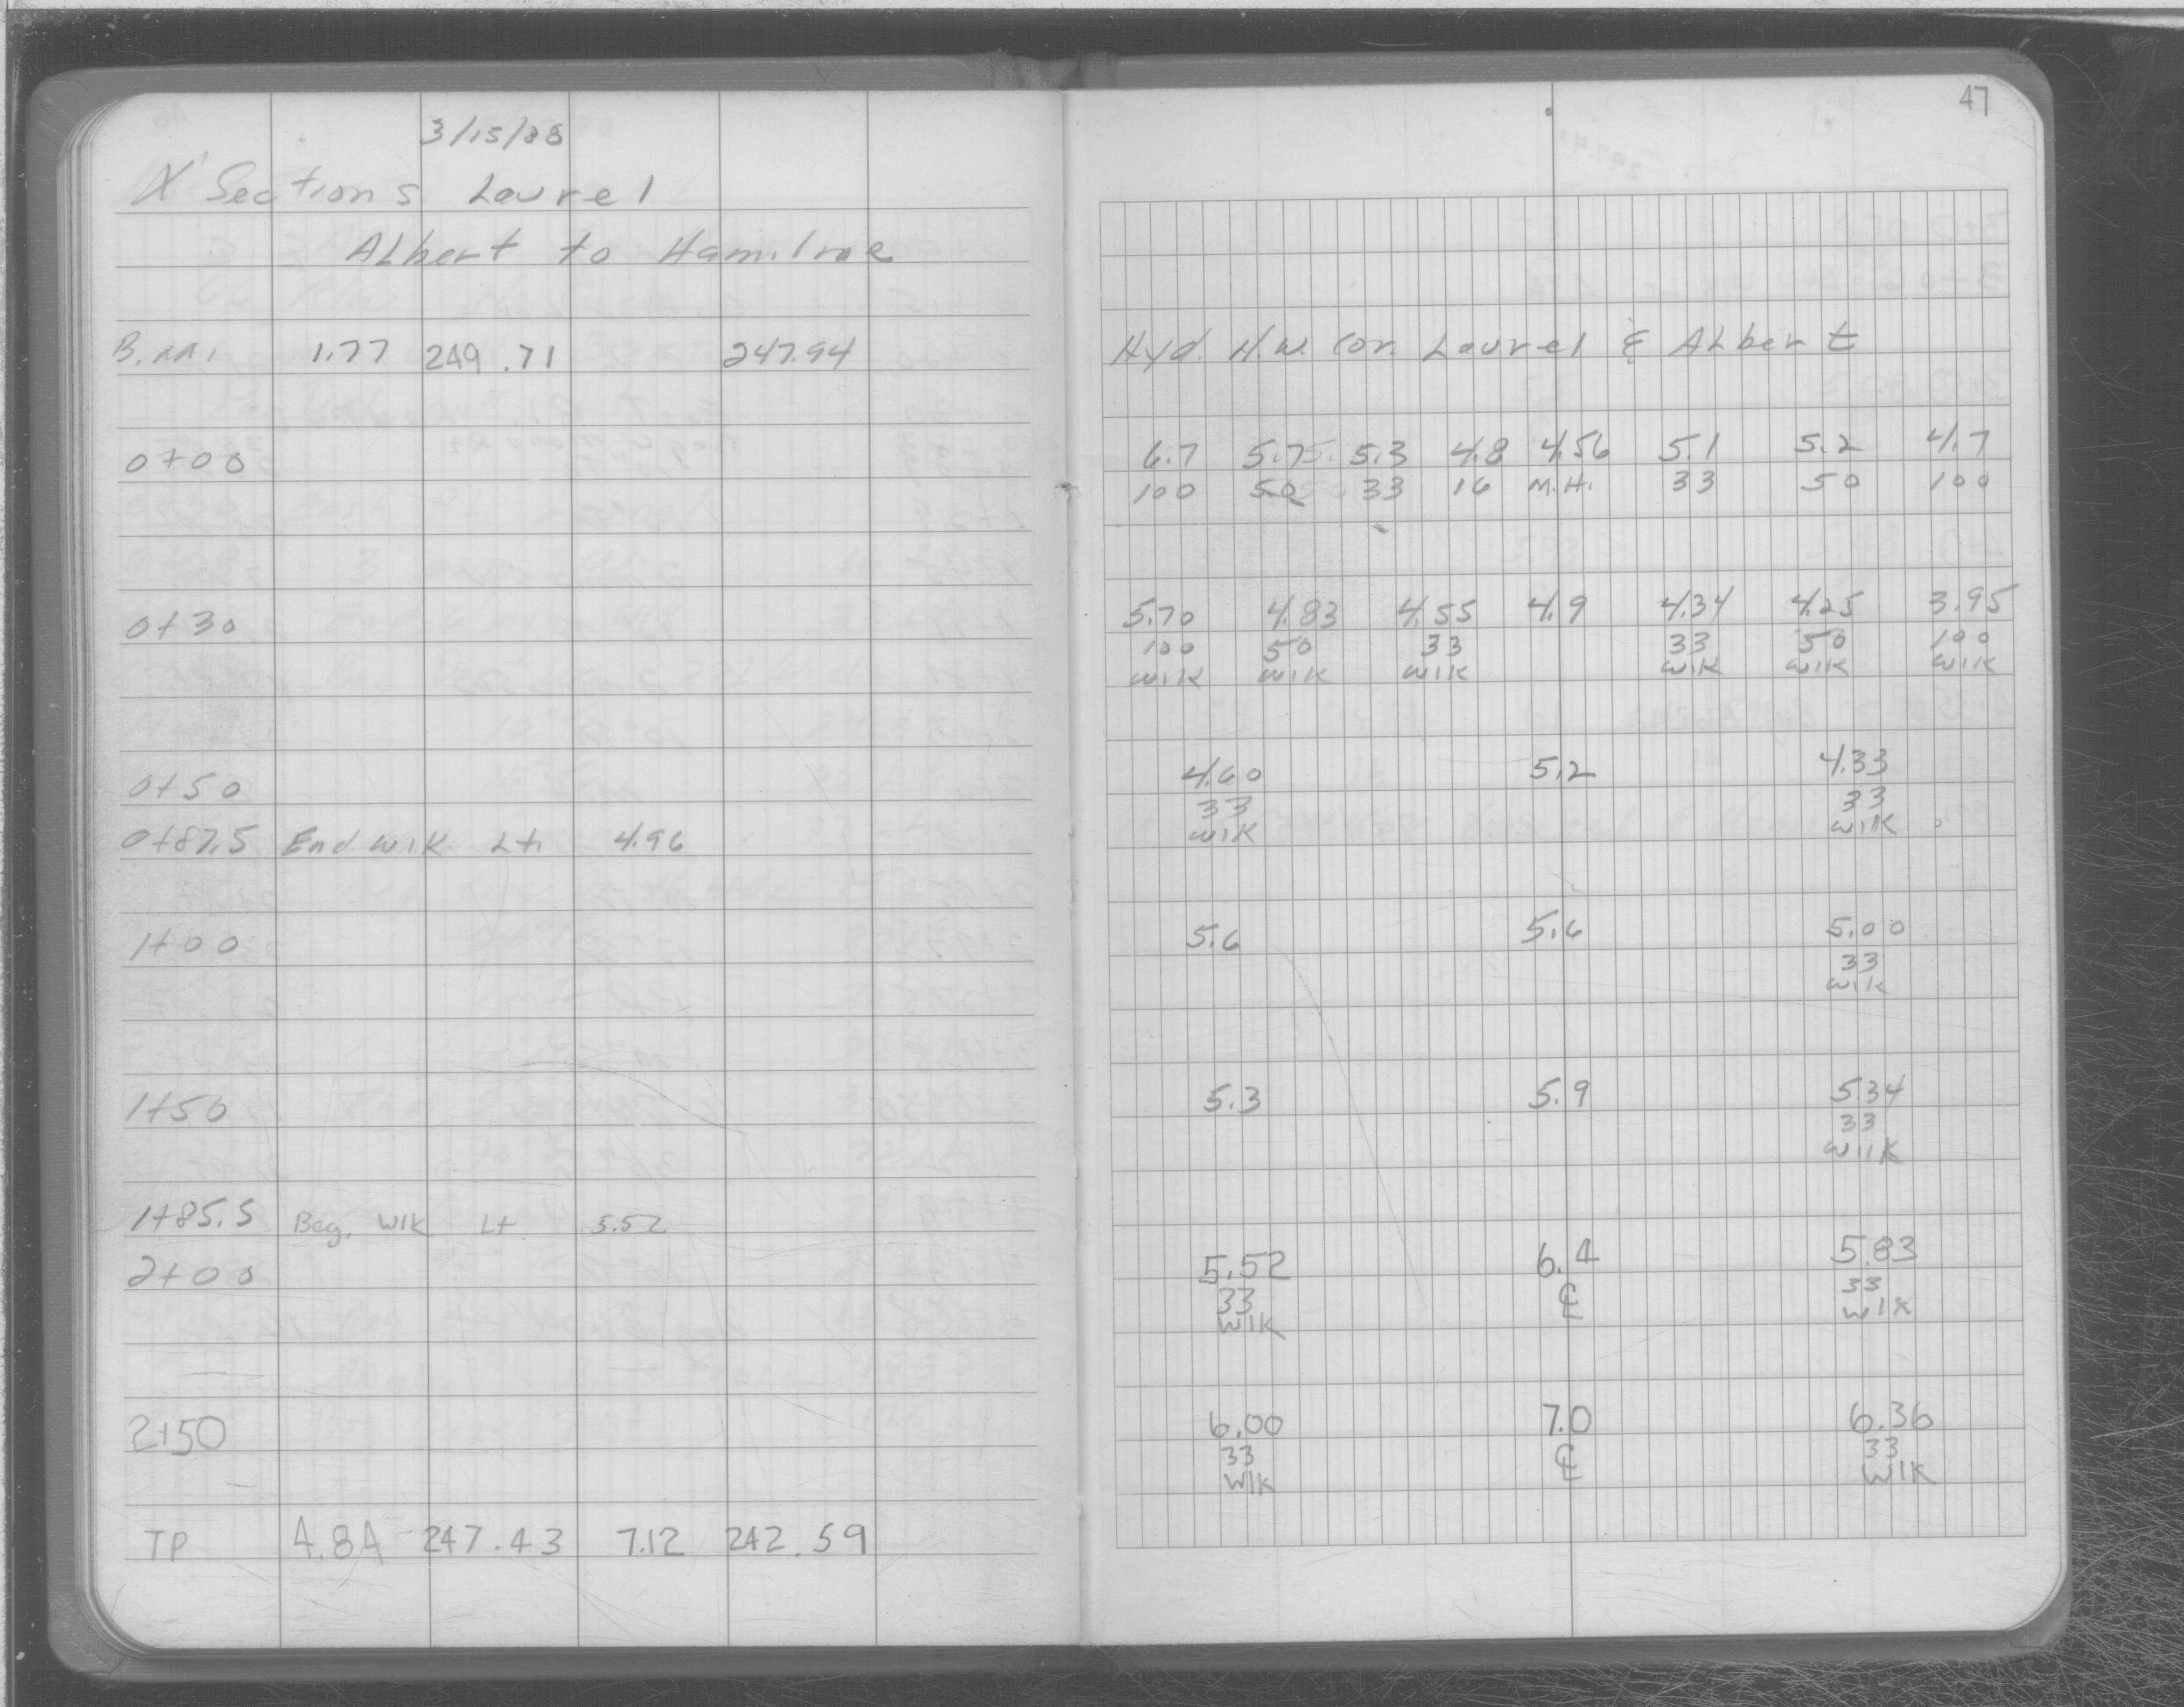 47
3/15/88
X Sections Laurel
Albert to Hamilne
B.M. 1.77 249.71 247.94 Hyd. N.W. Cor. Laurel & Albert
0+00 6.7 5.7 5.3 4.8 4.56 5.1 5.2 4.7
100 50 33 16 M.H. 33 50 100
0+30 5.70 4.83 4.55 4.9 4.34 4.25 3.95
100 50 33 33 50 100
WlK WlK WlK WlK WlK WlK
0+50 4.60 5.2 4.33
33 33
0+87.5 End WlK Lt. 4.96 WlK WlK
1+00 5.6 5.6 5.00
33
Wlk
1+50 5.3 5.9 5.34
33
WlK
1+85.5 Beg. WlK Lt 5.52
2+00 5.52 6.4 5.83
33 ℄ 33
WlK WlK
2+50 6.00 7.0 6.36
33 ℄ 33
WlK WlK
TP 4.84 247.43 7.12 242.59